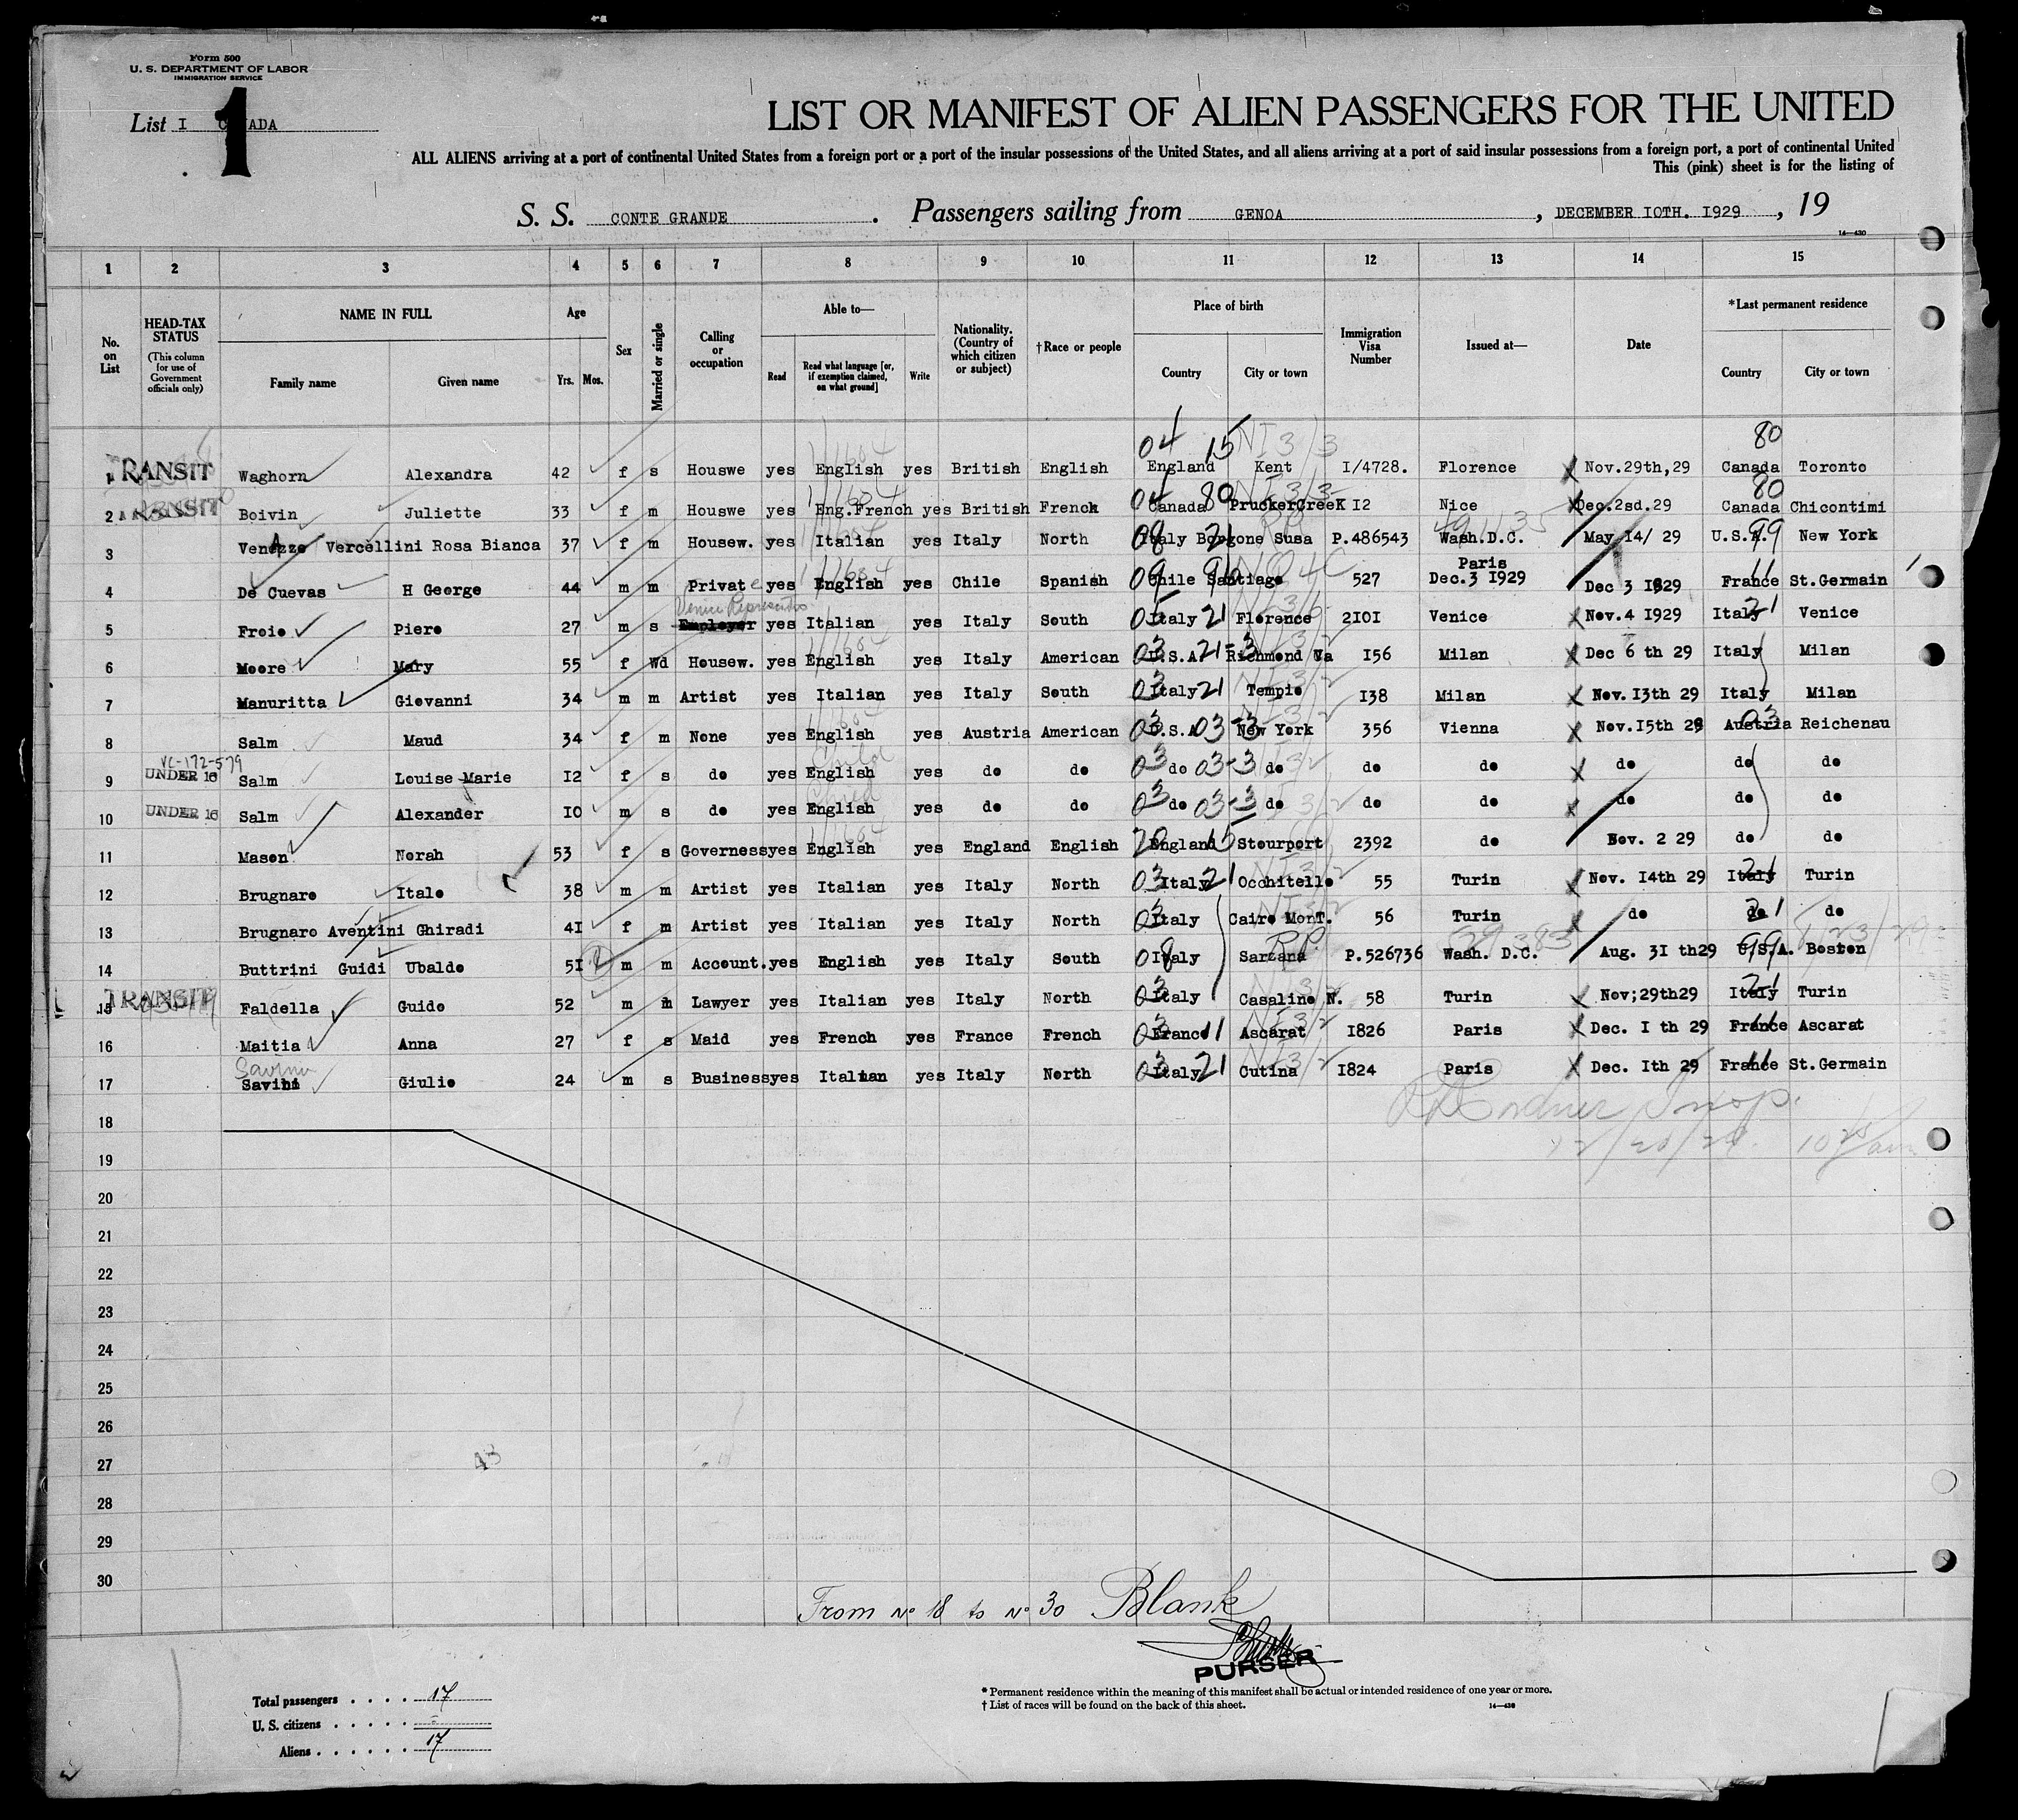 Form 500
U. S. DEPARTMENT OF LABOR
IMMIGRATION SERVICE
1
List I CANADA
LIST OR MANIFEST OF ALIEN PASSENGERS FOR THE UNITED
ALL ALIENS arriving at a port of continental United States from a foreign port or a port of the insular possessions of the United States, and all aliens arriving at a port of said insular possessions from a foreign port, a port of continental United
This (pink) sheet is for the listing of
S. S. CONTE GRANDE. Passengers sailing from GENOA, DECEMBER IOTH. I929, 19
14—430
1 2 3 4 5 6 7 8 9 10 11 12 13 14 15
No. on List
HEAD-TAX STATUS
(This column for use of Government officials only)
NAME IN FULL
Family name Given name
Age
Yrs. Mos.
Sex
Married or single
Calling or occupation
Able to—
Read
Read what language [or, if exemption claimed, on what ground]
Write
Nationality. (Country of which citizen or subject)
†Race or people
Place of birth
Country City or town
Immigration Visa Number
Issued at—
Date
*Last permanent residence
Country City or town
04 15 NI 3/3 80
1 TRANSIT Waghorn Alexandra 42 f s Houswe yes English yes British English England Kent I/4728. Florence Nov.29th,29 Canada Toronto
04 80 NI 3/3 80
2 TRANSIT Boivin Juliette 33 f m Houswe yes Eng.French yes British French Canada PruckerCreeK I2 Nice Dec.2sd.29 Canada Chicontimi
3 Venezze Vercellini Rosa Bianca 37 f m Housew. yes Italian yes Italy North Italy Borgone Susa P.486543 Wash.D.C. May 14/ 29 U.S.A. New York
08 21 RP 99
4 De Cuevas H George 44 m m Private yes English yes Chile Spanish Chile Santiago 527 Paris Dec.3 I929 Dec 3 I929 France St.Germain
5 Froio Piero 27 m s Employer yes Italian yes Italy South Italy 21 Florence 2IOI Venice Nov.4 I929 Italy Venice
6 Moore Mary 55 f Wd Housew. yes English yes Italy American U.S.A. 21-3 Richmond Va I56 Milan Dec 6 th 29 Italy Milan
7 Manuritta Giovanni 34 m m Artist yes Italian yes Italy South 03 Italy 21 Tempio I38 Milan Nov.I3th 29 Italy Milan
8 Salm Maud 34 f m None yes English yes Austria American 03 U.S.A 03-3 New York 356 Vienna Nov.I5th 29 Austria Reichenau
VC-172-579
9 UNDER 16 Salm Louise Marie I2 f s do yes English yes do do 03 do 03-3 do do do do do do
10 UNDER 16 Salm Alexander IO m s do yes English yes do do 03 do 03-3 do do do do do do
11 Mason Norah 53 f s Governess yes English yes England English England 15 Stourport 2392 do Nov. 2 29 do do
12 Brugnaro Italo 38 m m Artist yes Italian yes Italy North 03 Italy 21 Occhitello 55 Turin Nov. I4th 29 Italy Turin
13 Brugnaro Aventini Ghiradi 4I f m Artist yes Italian yes Italy North Italy Cairo MonT. 56 Turin do do do
14 Buttrini Guidi Ubaldo 5I m m Account. yes English yes Italy South 08 Italy Sarzana P.526736 Wash. D.C. Aug. 3I th29 U.S.A. Boston
15 TRANSIT Faldella Guido 52 m m Lawyer yes Italian yes Italy North 03 Italy Casaline N. 58 Turin Nov;29th29 Italy Turin
16 Maitia Anna 27 f s Maid yes French yes France French 03 France 11 Ascarat I826 Paris Dec. I th 29 France Ascarat
Savini
17 Savini Giulio 24 m s Business yes Italian yes Italy North 03 Italy 21 Cutina I824 Paris Dec. Ith 29 France St.Germain
18
12/20/29. 10 25 am
19
20
21
22
23
24
25
26
27
48
28
29
30
From No 18 to No 30 Blank
PURSER
Total passengers . . . . 17
U. S. citizens . . . . . -
Aliens . . . . . . 17
* Permanent residence within the meaning of this manifest shall be actual or intended residence of one year or more.
† List of races will be found on the back of this sheet.
14—430